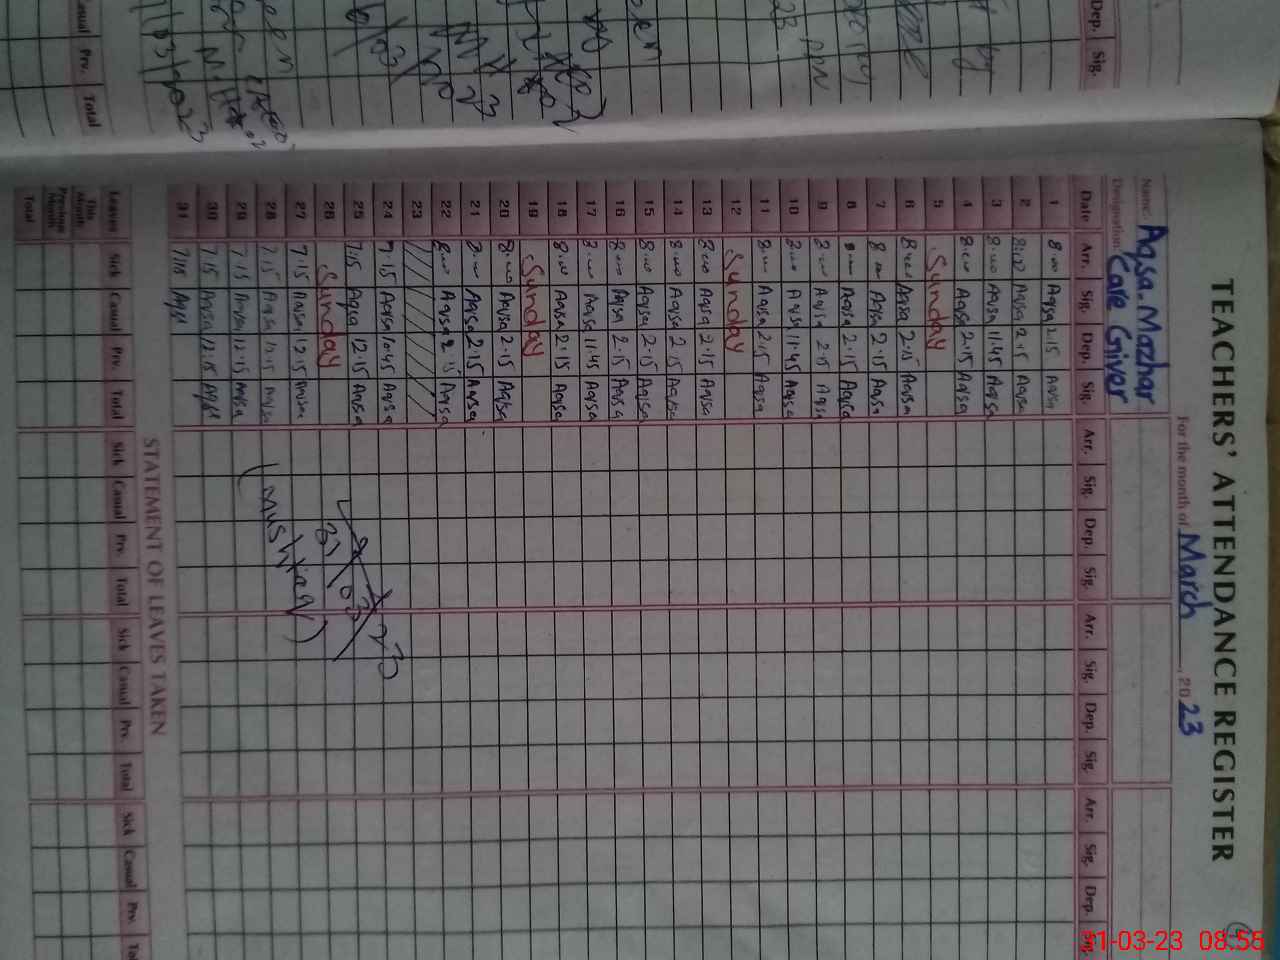 TEACHERS' ATTENDANCE REGISTER
For the month of March, 2023
Name: Aqsa. Mazhar
Designation: Care Giver
Date Arr. Sig. Dep. Sig. Arr. Sig. Dep. Sig. Arr. Sig. Dep. Sig. Arr. Sig. Dep. Sig.
1 8:00 Aqsa 2:15 Aqsa
2 8:00 Aqsa 2:15 Aqsa
3 8:00 Aqsa 11:45 Aqsa
4 8:00 Aqsa 2:15 Aqsa
5 Sunday
6 8:00 Aqsa 2:15 Aqsa
7 8:00 Aqsa 2:15 Aqsa
8 8:00 Aqsa 2:15 Aqsa
9 8:00 Aqsa 2:15 Aqsa
10 8:00 Aqsa 11:45 Aqsa
11 8:00 Aqsa 2:15 Aqsa
12 Sunday
13 8:00 Aqsa 2:15 Aqsa
14 8:00 Aqsa 2:15 Aqsa
15 8:00 Aqsa 2:15 Aqsa
16 8:00 Aqsa 2:15 Aqsa
17 8:00 Aqsa 11:45 Aqsa
18 8:00 Aqsa 2:15 Aqsa
19 Sunday
20 8:00 Aqsa 2:15 Aqsa
21 8:00 Aqsa 2:15 Aqsa
22 8:00 Aqsa 2:15 Aqsa
23
24 7:15 Aqsa 10:45 Aqsa
25 7:15 Aqsa 12:15 Aqsa
26 Sunday
27 7:15 Aqsa 12:15 Aqsa
28 7:15 Aqsa 12:15 Aqsa
29 7:15 Aqsa 12:15 Aqsa
30 7:15 Aqsa 12:15 Aqsa
31 7:15 Aqsa
31/03/23
(Mushtaq)
STATEMENT OF LEAVES TAKEN
Leaves Sick Casual Prv. Total Sick Casual Prv. Total Sick Casual Prv. Total Sick Casual Prv.
This Month
Previous Month
Total
Dep. Sig.
Casual Prv. Total
31-03-23 08:55